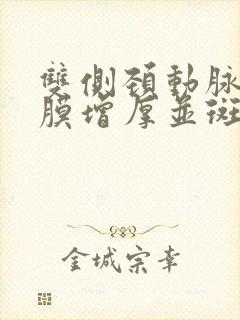 雙側頸動脉
膜增厚並斑
金城宗幸